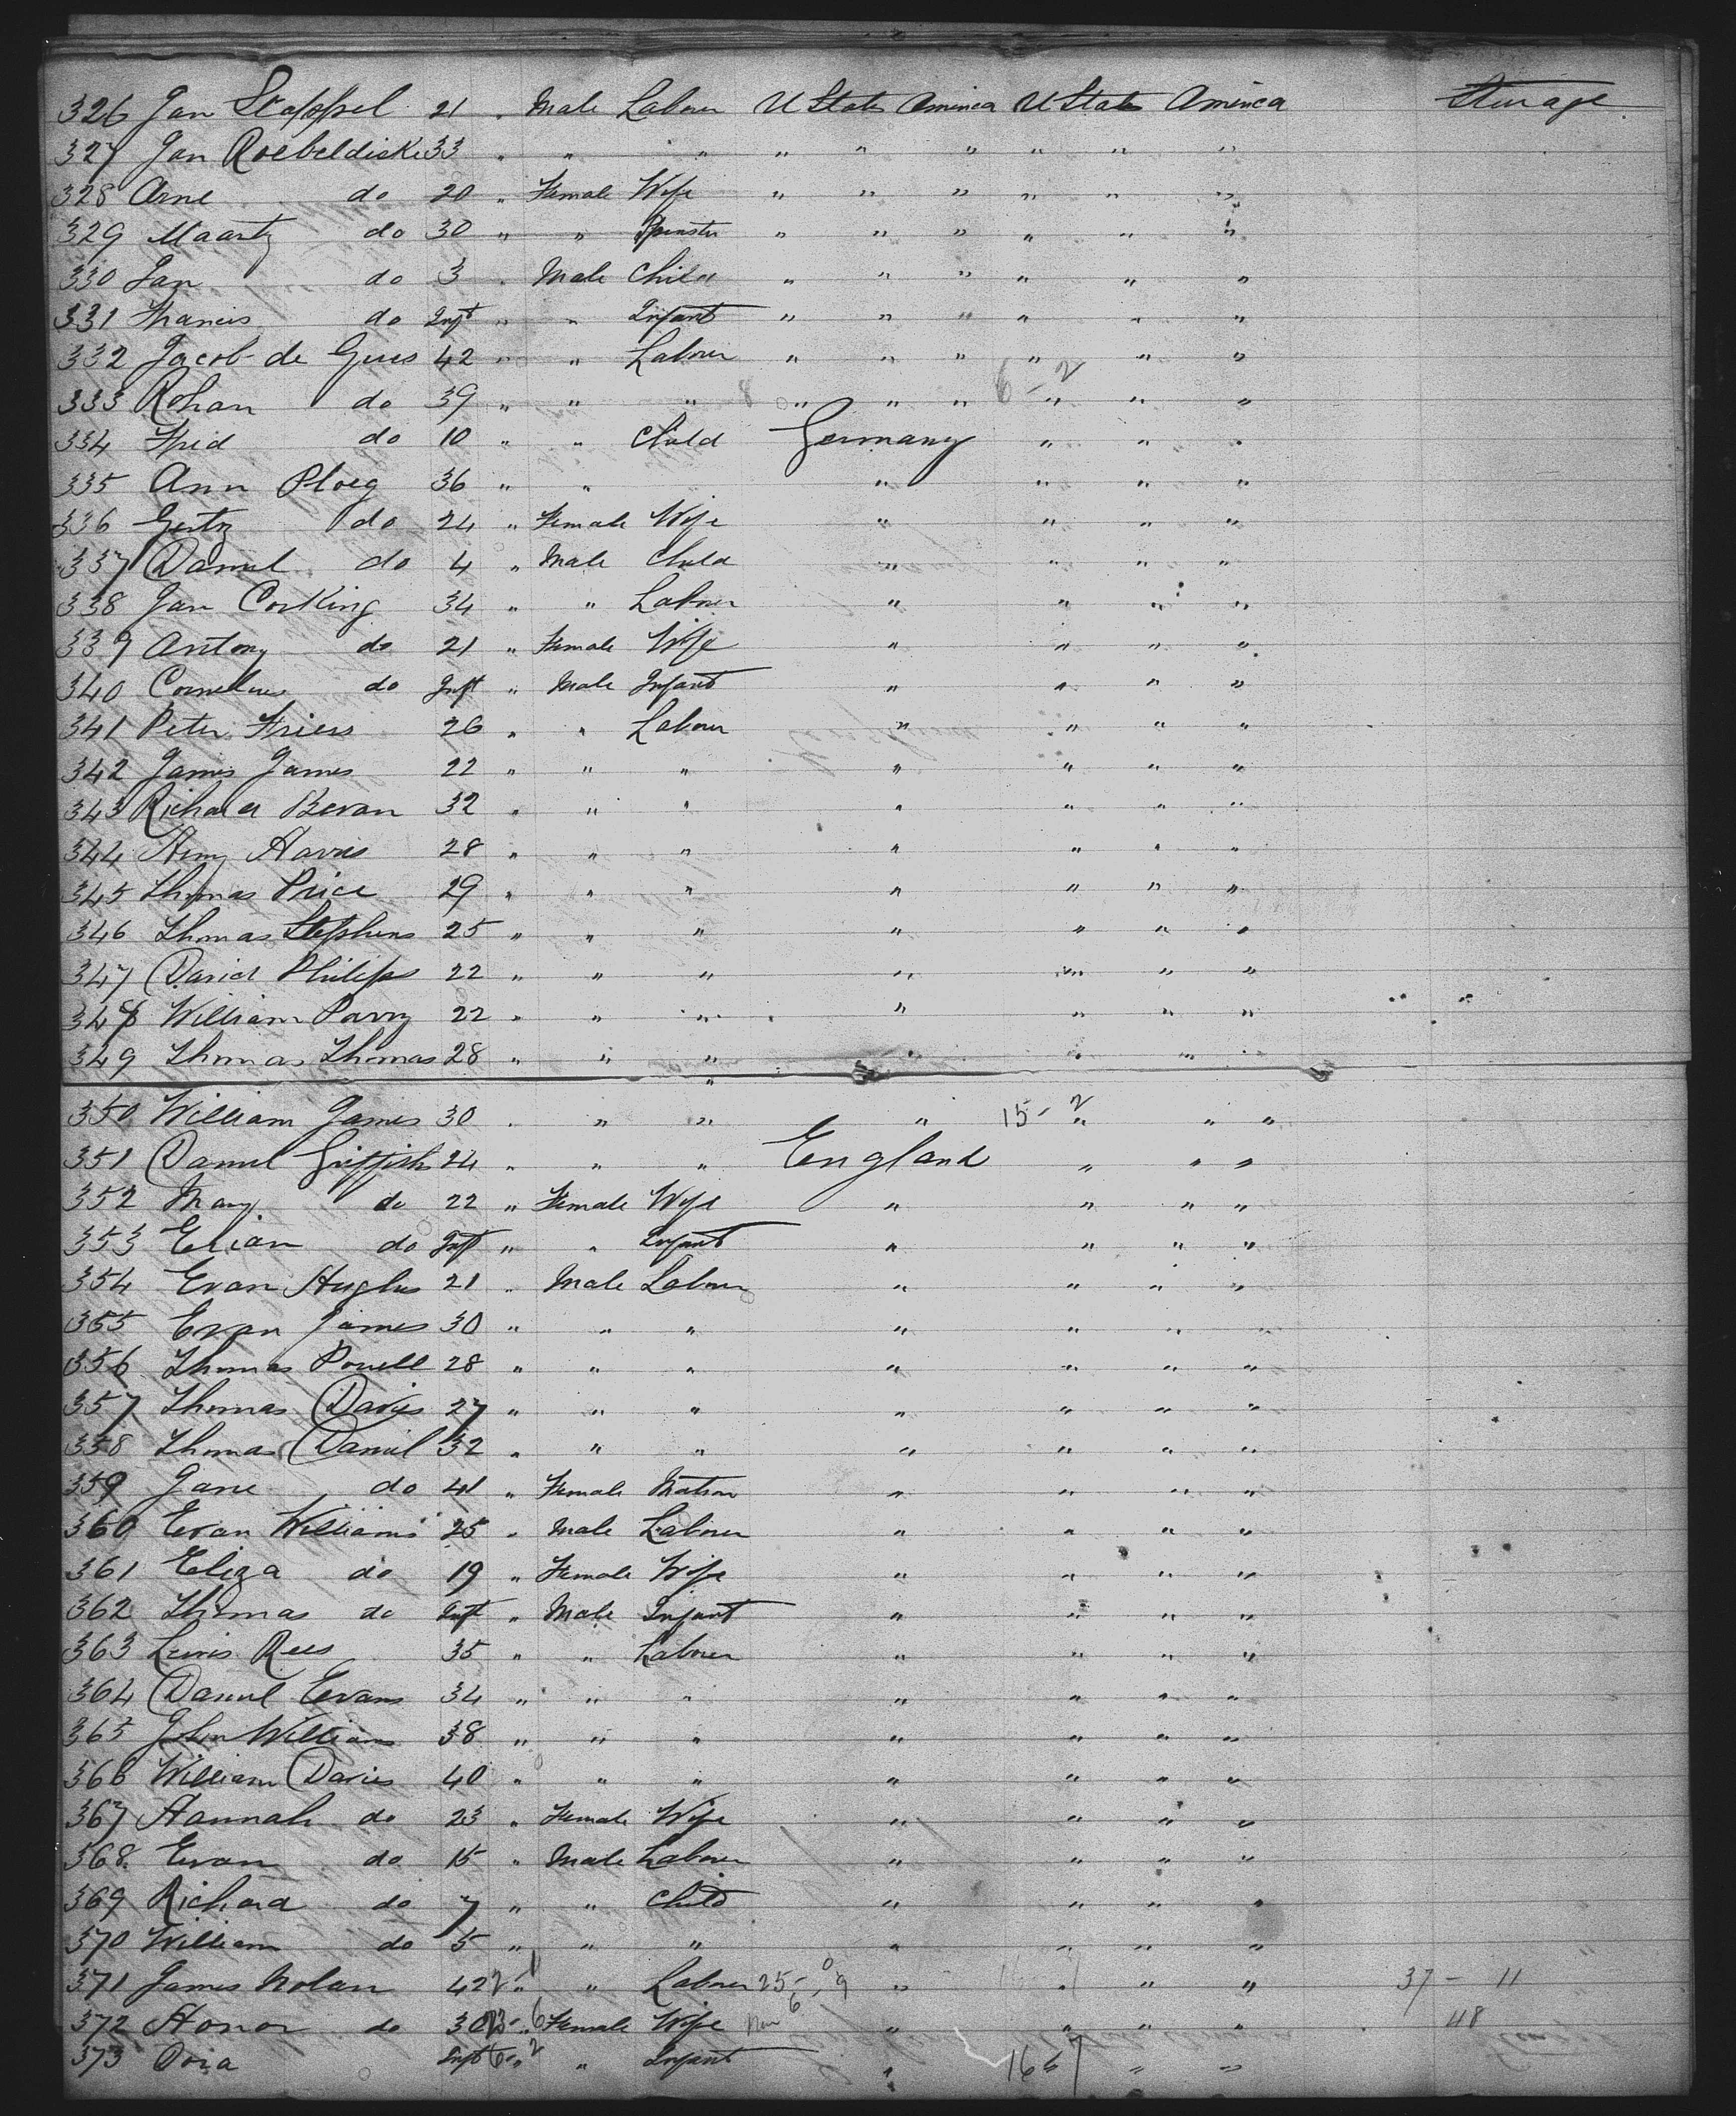 326 Jan Stappel 21 " Male Labour U States America U States America Steurage
327 Jan Roebeldiske 33 " " " " " " " " "
328 Arne do 20 " Female Wife " " " " " "
329 Maarty do 30 " " Spinster " " " " " "
330 Jan do 3 " Male Child " " " " " "
331 Francis do Inft " " Infant " " " " " "
332 Jacob de Gues 42 " " Labour " " " " " "
333 Rohan do 39 " " " 8 " " " 6 - 2 " " "
334 Fred do 10 " " Child Germany " " "
335 Ann Ploeg 36 " " " " " "
336 Gertz do 24 " Female Wife " " " "
337 Daniel do 4 " Male Child " " " "
338 Jan Corking 34 " " Labour " " " "
339 Antony do 21 " Female Wife " " " "
340 Cornelius do Inft " Male Infant " " " "
341 Peter Friess 26 " " Labour " " " "
342 James James 22 " " " " " " "
343 Richard Bevan 32 " " " " " " "
344 Henry Harris 28 " " " " " " "
345 Thomas Price 29 " " " " " " "
346 Thomas Stephens 25 " " " " " " "
347 David Philips 22 " " " " " " "
348 William Parry 22 " " " " " " "
349 Thomas Thomas 28 " " " " " " "
350 William James 30 " " " " 15 - 2 " " "
351 Daniel Griffith 24 " " " England " " "
352 Mary do 22 " Female Wife " " " "
353 Elian do Inft " " Infant " " " "
354 Evan Hughes 21 " Male Labour " " " "
355 Evan James 30 " " " " " " "
356 Thomas Powell 28 " " " " " " "
357 Thomas Davis 27 " " " " " " "
358 Thomas Daniel 32 " " " " " " "
359 Jane do 41 " Female Matron " " " "
360 Evan Williams 25 " Male Labour " " " "
361 Eliza do 19 " Female Wife " " " "
362 Thomas do Inft " Male Infant " " " "
363 Lewis Rees 35 " " Labour " " " "
364 Daniel Evans 34 " " " " " " "
365 John Williams 38 " " " " " " "
366 William Davies 40 " " " " " " "
367 Hannah do 23 " Female Wife " " " "
368 Evan do 15 " Male Labour " " " "
369 Richard do 7 " " Child " " " "
370 William do 5 " " " " " " "
371 James Nolan 42 2 - 1 " " Labour 25 - 9 " " " " 37 - 11
372 Honor do 30 " Female Wife " " " " 48
373 Dora Inft 6 - 2 " Infant " 16 6 7 " "